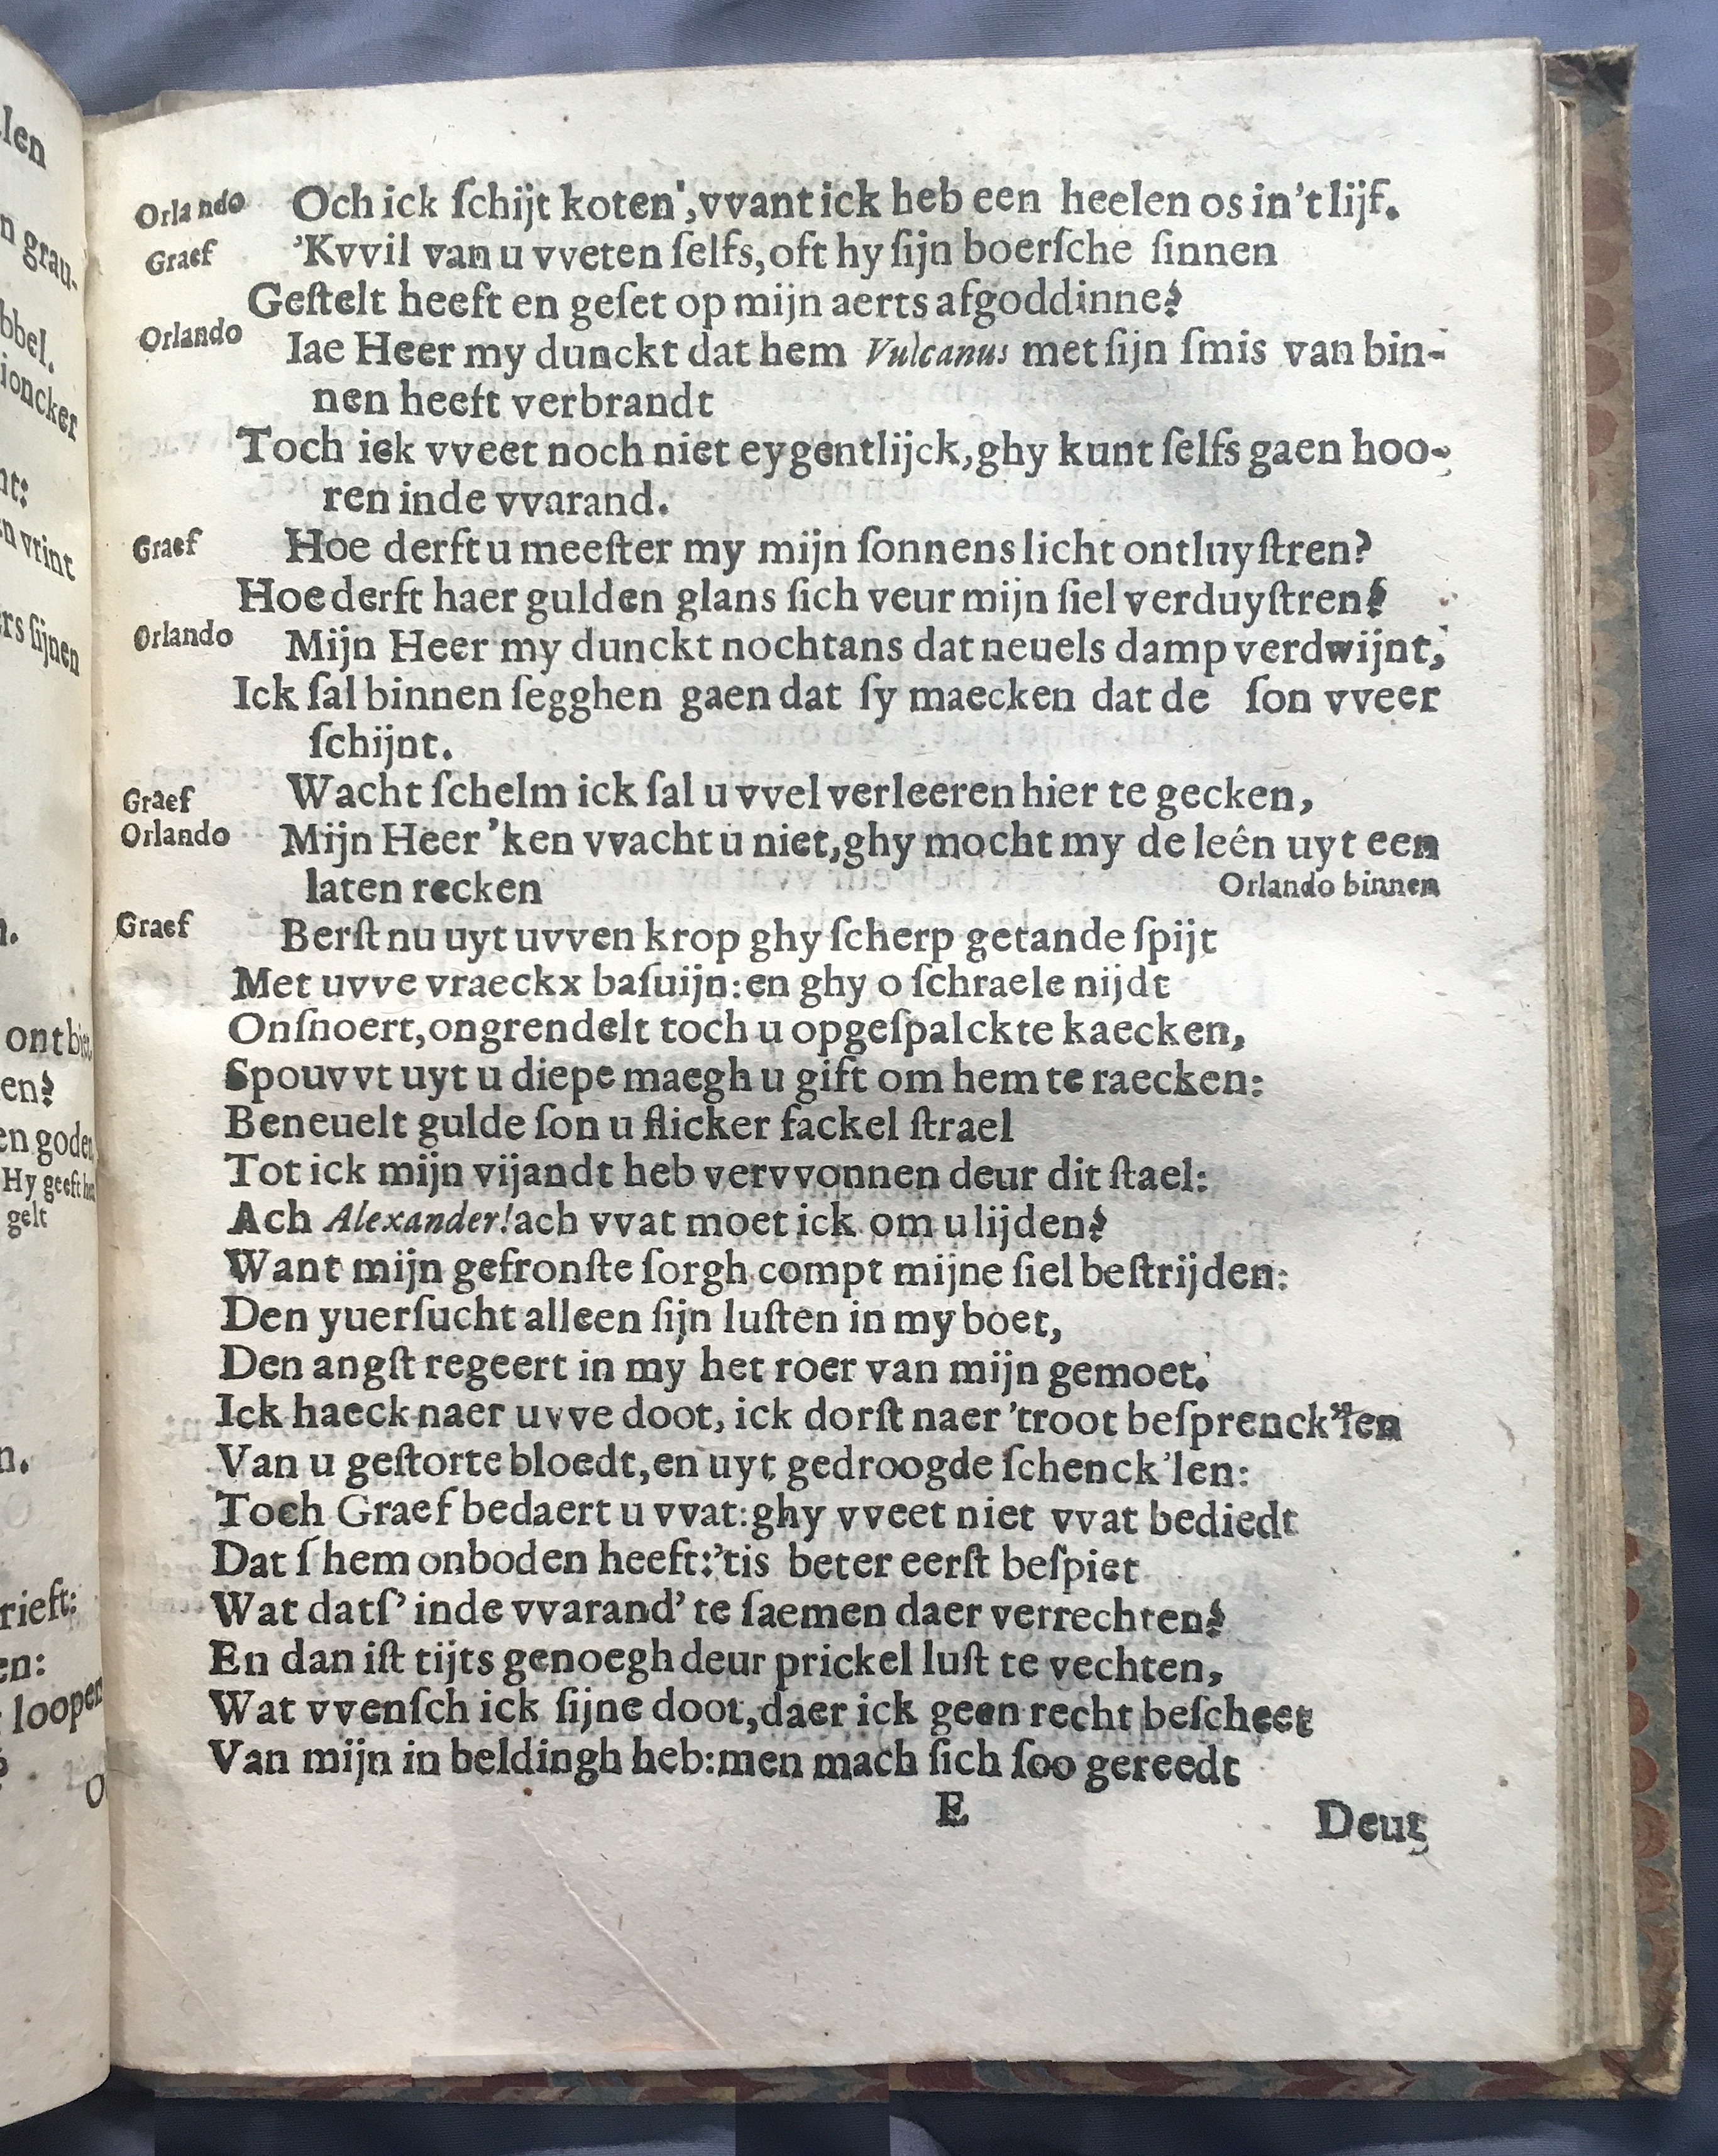 Orlando Och ick ſchijt koten', vvant ick heb een heelen os in't lijf.
Graef 'Kvvil van u vveten ſelfs, oft hy ſijn boerſche ſinnen
Geſtelt heeft en geſet op mijn aerts afgoddinne?
Orlando Iae Heer my dunckt dat hem Vulcanus met ſijn ſmis van bin-
nen heeft verbrandt
Toch ick vveet noch niet eygentlijck, ghy kunt ſelfs gaen hoo-
ren inde vvarand.
Graef Hoe derft u meeſter my mijn ſonnens licht ontluyſtren?
Hoe derft haer gulden glans ſich veur mijn ſiel verduyſtren?
Orlando Mijn Heer my dunckt nochtans dat neuels damp verdwijnt,
Ick ſal binnen ſegghen gaen dat ſy maecken dat de ſon vveer
ſchijnt.
Graef Wacht ſchelm ick ſal u vvel verleeren hier te gecken,
Orlando Mijn Heer 'ken vvacht u niet, ghy mocht my de leên uyt een
laten recken Orlando binnen
Graef Berſt nu uyt uvven krop ghy ſcherp getande ſpijt
Met uvve vraeckx baſuijn: en ghy o ſchraele nijdt
Onſnoert, ongrendelt toch u opgeſpalckte kaecken,
Spouvvt uyt u diepe maegh u gift om hem te raecken:
Beneuelt gulde ſon u flicker fackel ſtrael
Tot ick mijn vijandt heb vervvonnen deur dit ſtael:
Ach Alexander! ach vvat moet ick om u lijden?
Want mijn gefronſte ſorgh compt mijne ſiel beſtrijden:
Den yuerſucht alleen ſijn luſten in my boet,
Den angſt regeert in my het roer van mijn gemoet.
Ick haeck naer uvve doot, ick dorſt naer 'troot beſprenck'len
Van u geſtorte bloedt, en uyt gedroogde ſchenck'len:
Toch Graef bedaert u vvat: ghy vveet niet vvat bediedt
Dat ſ hem onboden heeft: 'tis beter eerſt beſpiet
Wat datſ' inde vvarand' te ſaemen daer verrechten?
En dan iſt tijts genoegh deur prickel luſt te vechten,
Wat vvenſch ick ſijne doot, daer ick geen recht beſcheet
Van mijn in beldingh heb: men mach ſich ſoo gereedt
E Deur